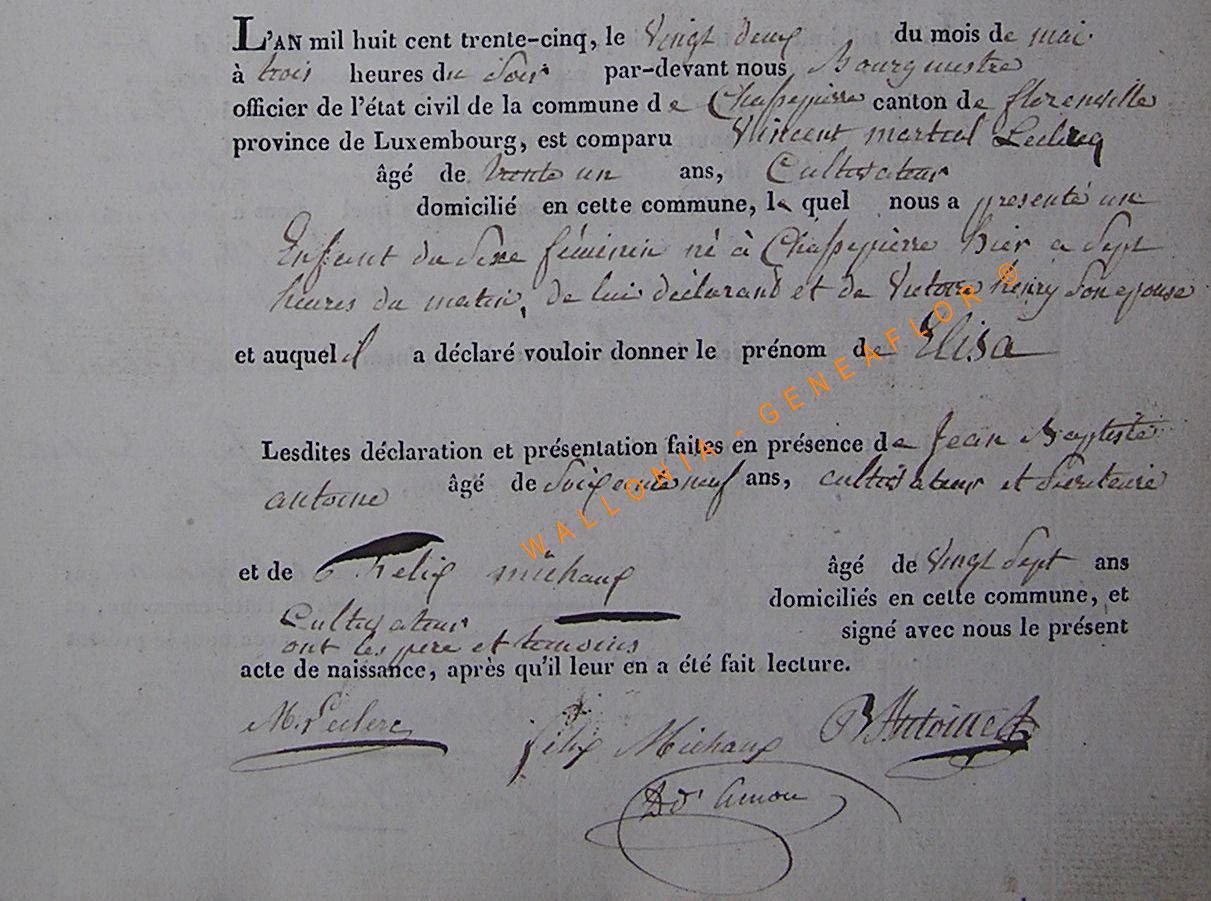 L'AN mil huit cent trente-cinq, le vingt deux du mois de mai
à trois heures du soir par-devant nous Bourgmestre
officier de l'état civil de la commune de Chassepierre canton de florenville
province de Luxembourg, est comparu Vincent martial Leclercq
âgé de trente un ans, Cultivateur
domicilié en cette commune, le quel nous a présenté un
Enfant du Sexe féminin né à Chassepierre hier a Sept
heures du matin, de lui déclarant et de Victoire henry Son epouse
et auquel il a déclaré vouloir donner le prénom de Elisa
Lesdites déclaration et présentation faites en présence de Jean Baptiste
antoine âgé de Soixante neuf ans, cultivateur et Secretaire
et de felix michaux âgé de vingt Sept ans
domiciliés en cette commune, et
Cultivateur
signé avec nous le présent
ont les père et temoins
acte de naissance, après qu'il leur en a été fait lecture.
M. Leclerc
felix Michaux
B Antoine
WALLONIA - GENEAFLOR ®